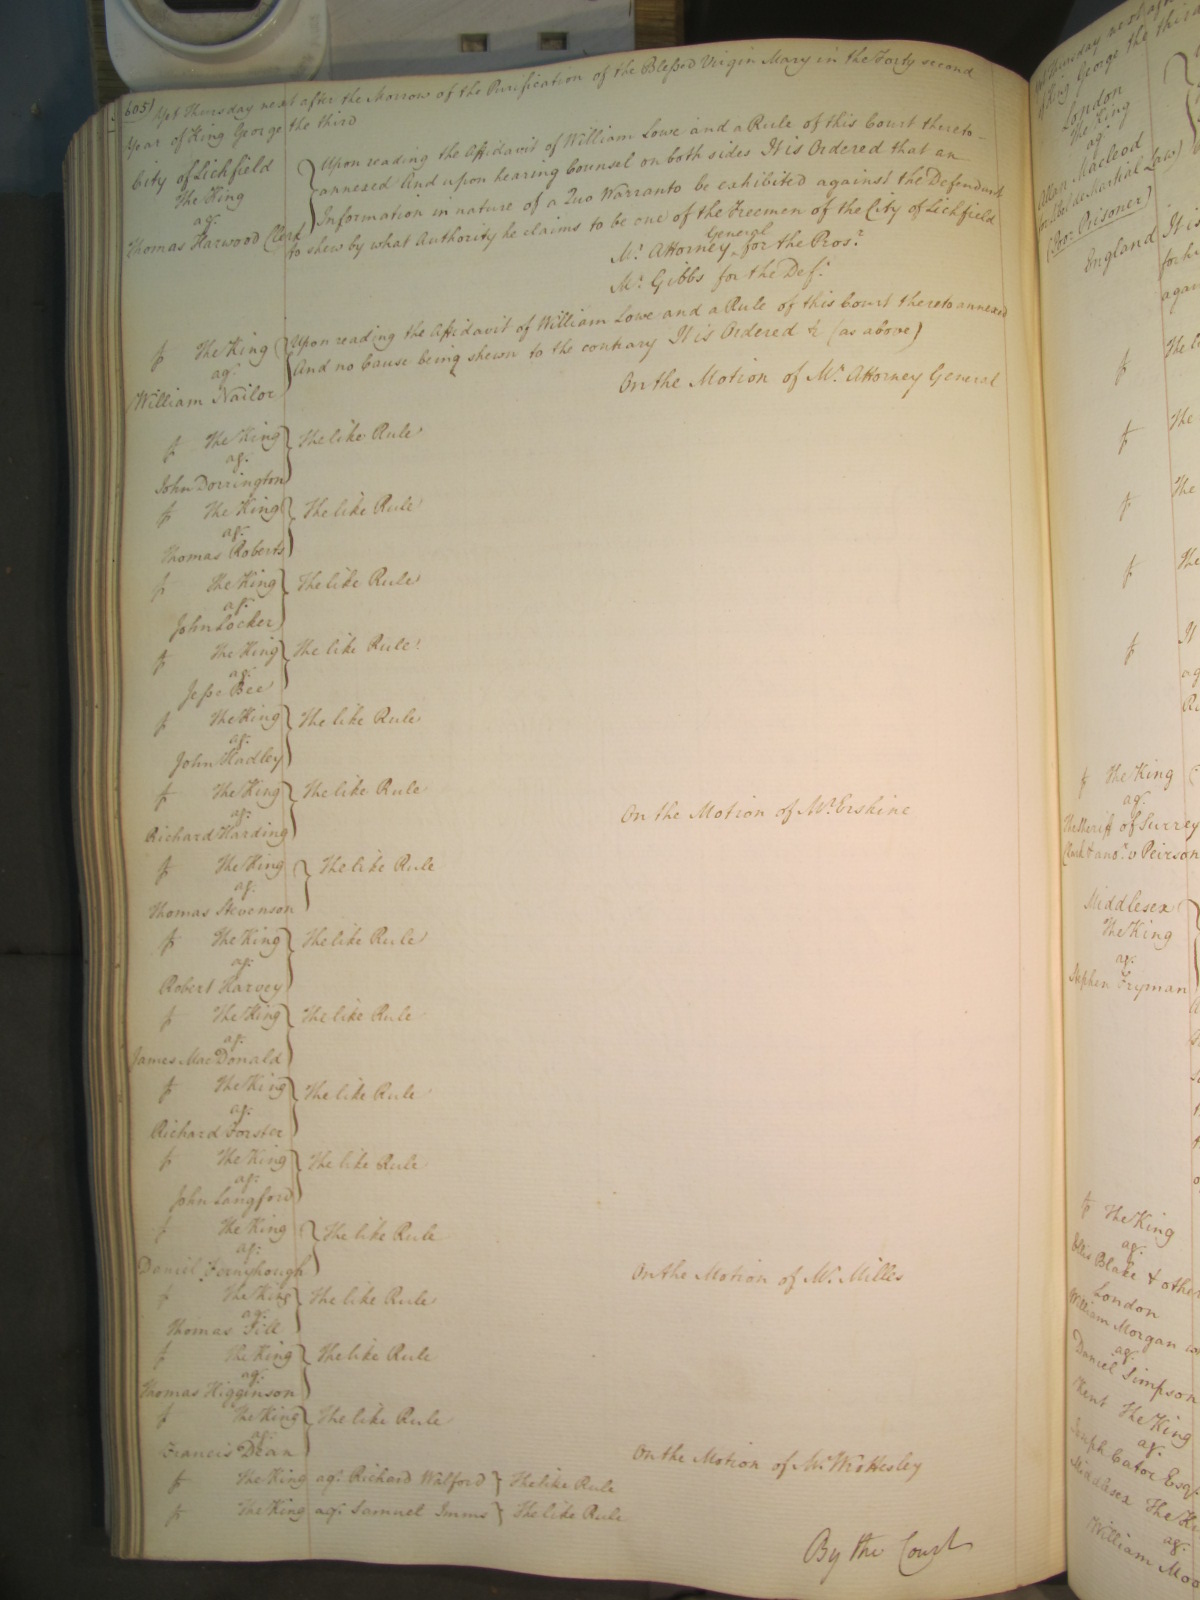 605) Yet Thursday next after the Morrow of the Purification of the Blessed Virgin Mary in the Forty second
Year of King George the third
City of Lichfield
The King
agt
Thomas Harwood Clerk
Upon reading the Affidavit of William Lowe and a Rule of this Court thereto
annexed And upon hearing Counsel on both sides It is Ordered that an
Information in nature of a Quo Warranto be exhibited against the Defendant
to shew by what Authority he claims to be one of the Freemen of the City of Lichfield
Mr. Attorney General for the Prosr.
Mr. Gibbs for the Deft.
The King
agt
William Nailor
Upon reading the Affidavit of William Lowe and a Rule of this Court thereto annexed
And no Cause being shewn to the contrary It is Ordered &c (as above)
On the Motion of Mr. Attorney General
The King } The like Rule
agt
John Dorrington
The King } The like Rule
agt
Thomas Roberts
The King } The like Rule
agt
John Locker
The King } The like Rule
agt
Jesse Bee
The King } The like Rule
agt
John Hadley
The King } The like Rule
agt
Richard Harding
On the Motion of Mr. Erskine
The King } The like Rule
agt
Thomas Stevenson
The King } The like Rule
agt
Robert Harvey
The King } The like Rule
agt
James MacDonald
The King } The like Rule
agt
Richard Forster
The King } The like Rule
agt
John Langford
The King } The like Rule
agt
Daniel Fernyhough
On the Motion of Mr. Milles
The King } The like Rule
agt
Thomas Hill
The King } The like Rule
agt
Thomas Higginson
The King } The like Rule
agt
Francis Dean
On the Motion of Mr. Wrottesley
The King agt Richard Walford } The like Rule
The King agt Samuel Imms } The like Rule
By the Court
London
The King
agt
Allan Macleod
for Libel de Martial Law)
(For: Prisoner)
England It is
The King
agt
The Sheriff of Surrey
Clark & anor. v Peirson
Middlesex
The King
agt
Stephen Fryman
The King
agt
Blake & other
London
William Morgan
agt
Daniel Simpson
Kent The King
agt
Joseph Cator Esqr
Middlesex The Ki
agt
William Moo